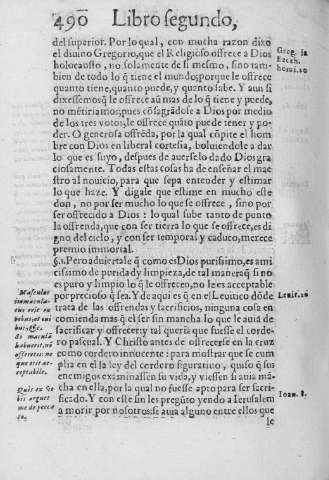 490 Libro segundo,
del superior. Por lo qual, con mucha razon dixo
el diuino Gregorio, que el Religioso ofrece a Dios
holocausto, no solamente de si mesmo, sino tam-
bien de todo lo q̃ tiene el mundo; porque le ofrece
quanto tiene, quanto puede, y quanto sabe. Y aun si
dixessemos q̃ le ofrece aũ mas de lo q̃ tiene y puede,
no mẽtiriamos; pues cõsagrãdose a Dios por medio
de los tres votos, le ofrece quãto puede tener y po-
der. O generosa offrẽda, por la qual cõpite el hom-
bre con Dios en liberal cortesia, boluiendole a dar
lo que es suyo, despues de auerselo dado Dios gra-
ciosamente. Todas estas cosas ha de enseñar el mae-
stro al nouicio, para que sepa entender y estimar
lo que haze. Y digale que estime en mucho este
don, no por ser mucho lo que se offrece, sino por
ser offrecido a Dios: lo qual sube tanto de punto
la offrenda, que con ser tierra lo que se offrece, es di-
gno del cielo, y con ser temporal y caduco, merece
premio immortal.
Pero aduiertale q̃ como es Dios purissimo, es ami-
cissimo de puridad y limpieza, de tal manera q̃ si no
es puro y limpio lo q̃ le offrecen, no le es acceptable
por precioso q̃ sea. Y de aqui es q̃ en el Leuitico dõde
trata de las offrendas y sacrificios, ninguna cosa en
comienda mas q̃ el ser sin mancha lo que le auia de
sacrificar y offrecer: y tal queria que fuesse el corde-
ro pasqual. Y Christo antes de offrecerse en la cruz
como cordero innocente: para mostrar que se cum
plia en el la ley del cordero figuratiuo, quiso q̃ sus
enemigos examinassen su vida, y viessen si auia mã-
cha en ella, por la qual no fuesse apto para ser sacri-
ficado. Y con este fin les pregũto yendo a Ierusalem
a morir por nosotros: si auia alguno entre ellos que
le
Greg. in
Ezech.
homi. 20
Masculus
immacula-
tus erit ex
bobus, &c.
maculã
habuerit, nõ
offeretis: ne
que erit ac-
ceptabile.
Quis ex vo
bis arguet
me de pecca
to.
Leuit. 22
Ioan. 8.